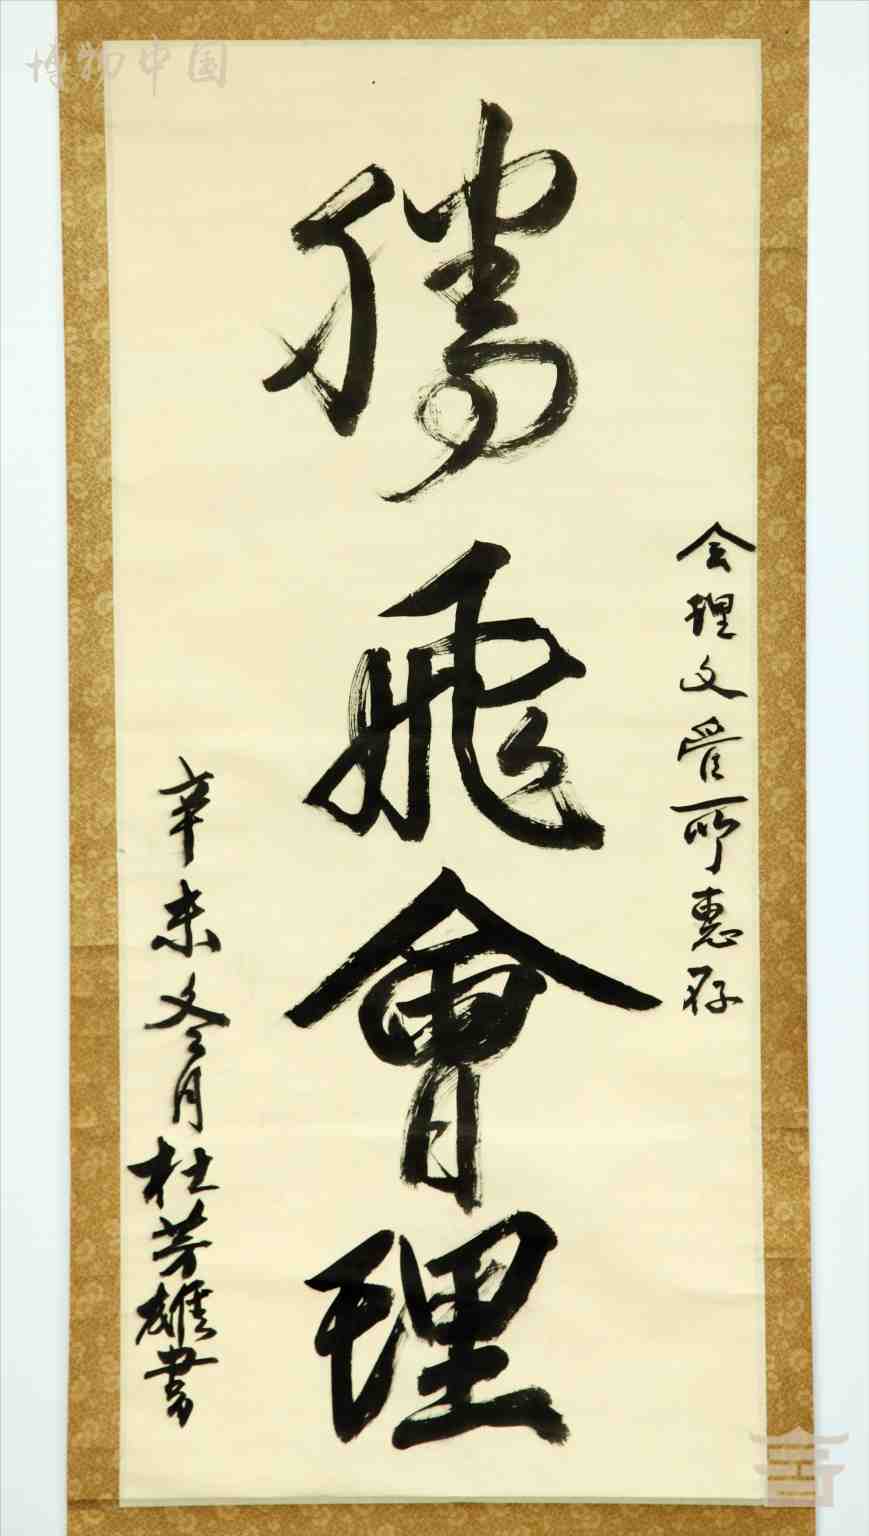 博物中国
会理文管所惠存
騰飛會理
辛未冬月杜芳雄書